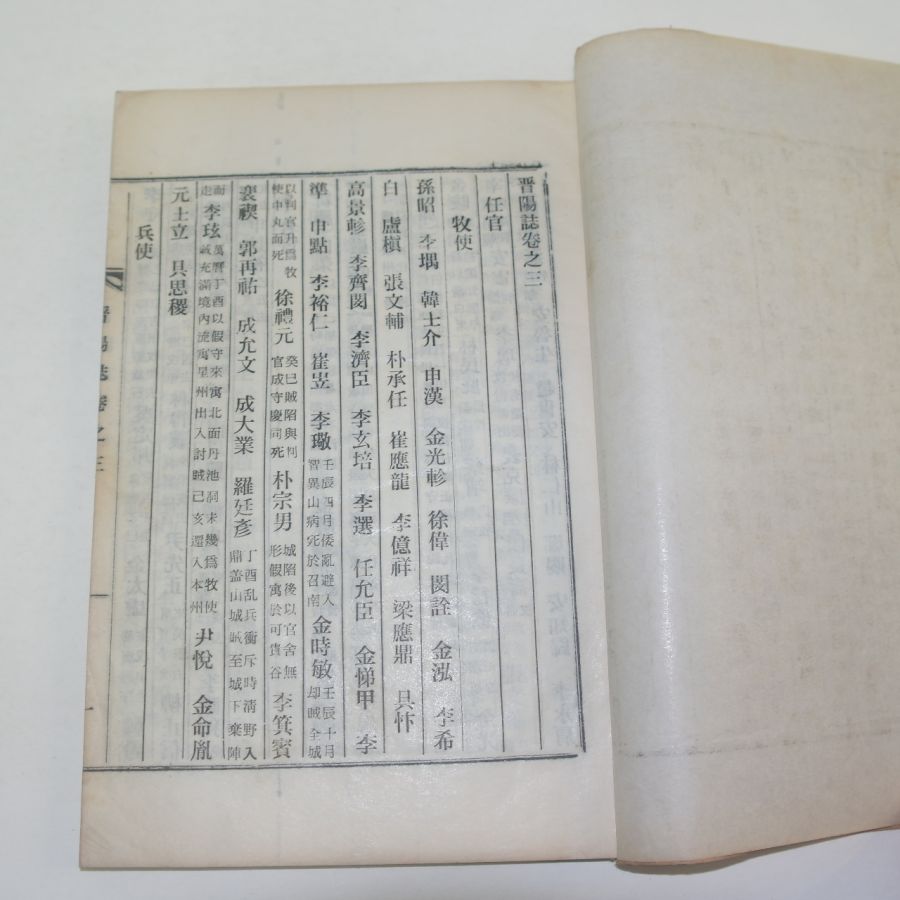 晋陽誌卷之三
任官
牧使
孫昭 李堣 韓士介 申漢 金光軫 徐偉 閔詮 金泓 李希
白 盧槇 張文輔 朴承任 崔應龍 李億祥 梁應鼎 具忭
高景軫 李齊閔 李濟臣 李玄培 李選 任允臣 金悌甲 李
準 申點 李裕仁 崔岦 李璥 壬辰四月倭亂避入智異山病死於召南 金時敏 壬辰十月却賊全城
以判官升爲牧使中丸而死 徐禮元 癸巳賊陷與判官成守慶同死 朴宗男 城陷後以官舍無形假寓於可貴谷 李箕賓
裵楔 郭再祐 成允文 成大業 羅廷彦 丁酉乱兵衝斥時淸野入鼎盖山城賊至城下棄陣
而走 李玹 萬曆丁酉以假守來寓北面丹池洞未幾爲牧使賊充滿境內流寓星州出入討賊己亥還入本州 尹悅 金命胤
元士立 具思稷
兵使
晋陽誌卷之三
一